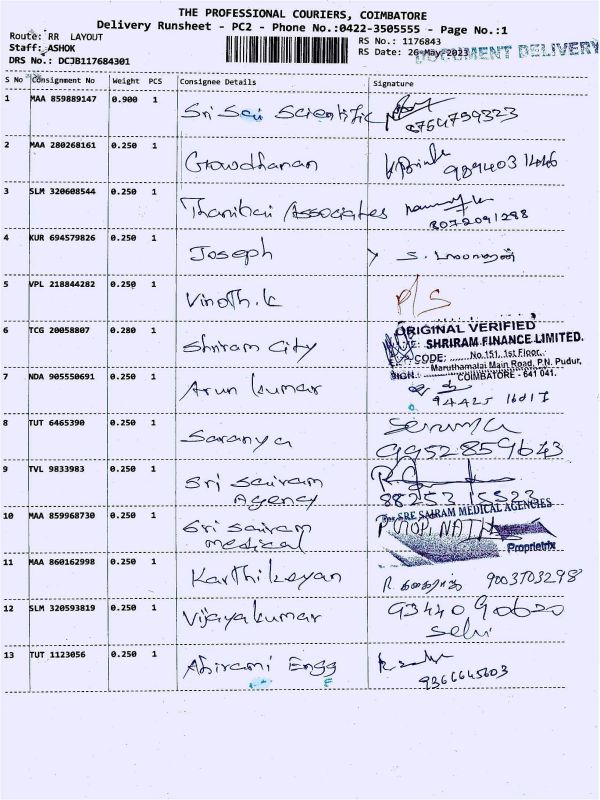 THE PROFESSIONAL COURIERS, COIMBATORE
Delivery Runsheet - PC2 - Phone No.:0422-3505555 - Page No.:1
Route: RR LAYOUT
Staff: ASHOK
DRS No.: DCJB117684301
RS No.: 1176843
RS Date: 26-May-2023
DOCUMENT DELIVERY
S No Consignment No Weight PCS Consignee Details Signature
1 MAA 859889147 0.900 1 Sri Sai Scientific 8754759323
2 MAA 280268161 0.250 1 Gowdhanan
3 SLM 320608544 0.250 1 Thanibai Associates 8072091298
4 KUR 694579826 0.250 1 Joseph
5 VPL 218844282 0.250 1 Vinoth.k P/S
6 TCG 20058807 0.280 1 Shriram City
ORIGINAL VERIFIED
SHRIRAM FINANCE LIMITED.
CODE: No.151, 1st Floor,
Maruthamalai Main Road, P.N. Pudur,
SIGN. COIMBATORE - 641 041.
7 NDA 905550691 0.250 1 Arun kumar 94425 16017
8 TUT 6465390 0.250 1 Saranya
9952859643
9 TVL 9833983 0.250 1 Sri Sairam
Agency 88253 15523
For SRE SAIRAM MEDICAL AGENCIES
10 MAA 859968730 0.250 1 Sri Sairam
medical
Proprietrix
11 MAA 860162998 0.250 1 Karthikeyan 9003703298
12 SLM 320593819 0.250 1 Vijayakumar 9344090620
Selvi
13 TUT 1123056 0.250 1 Abirami Engg
9366645603